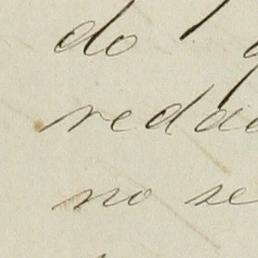 do
redac
no se